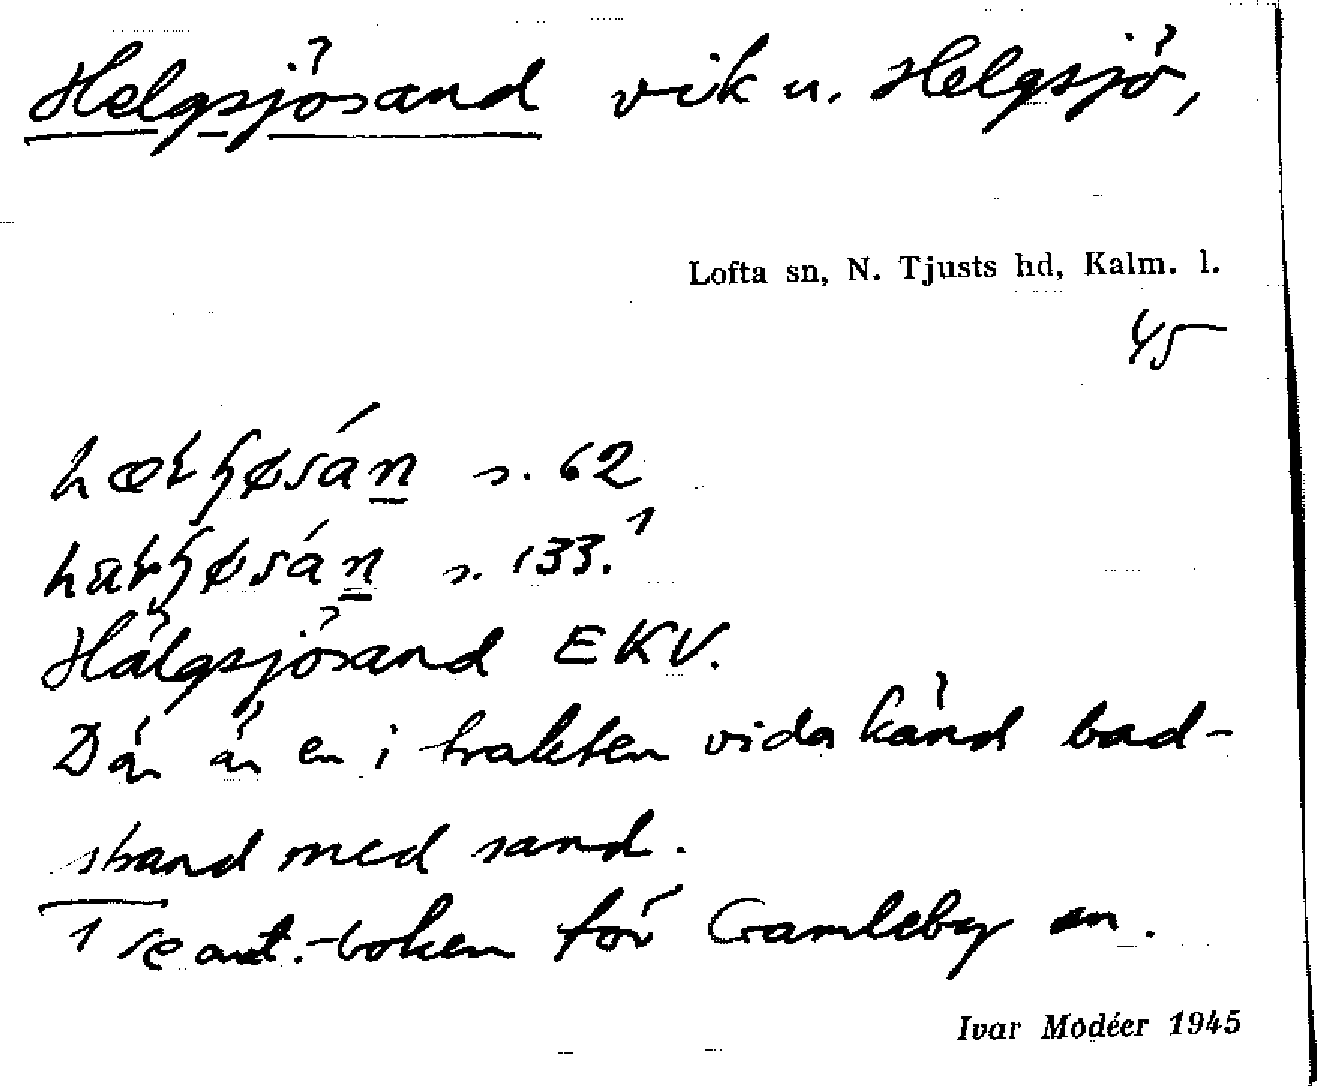 Helgsjösand vik u. Helgsjö,
Lofta sn, N. Tjusts hd, Kalm. l.
45
s. 62
s. 133.¹
Hälgsjösand EKV.
Där är en i trakten vida känd bad-
strand med sand.
¹ Se ant.-boken för Gamleby sn.
Ivar Modéer 1945